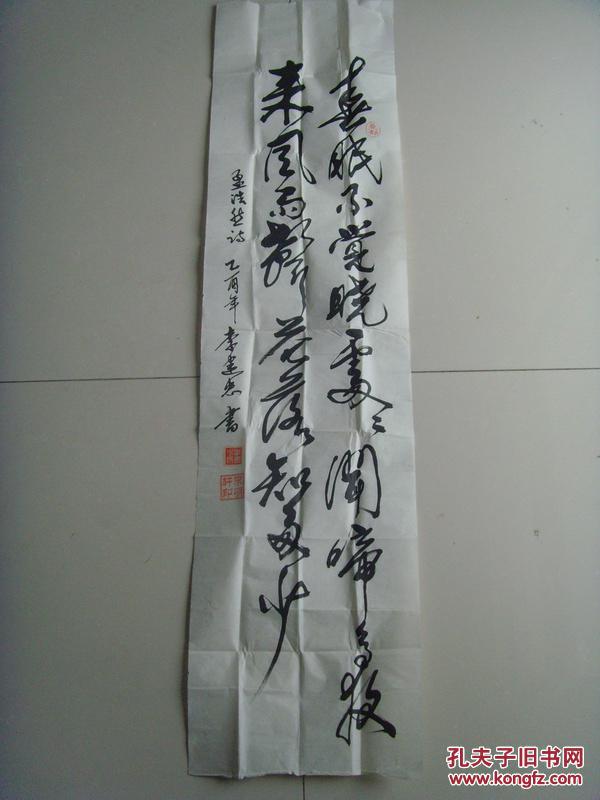 春眠不觉晓处々闻啼鸟夜
来风雨声花落知多少
孟浩然诗 乙酉年 李建忠 书
孔夫子旧书网
www.kongfz.com